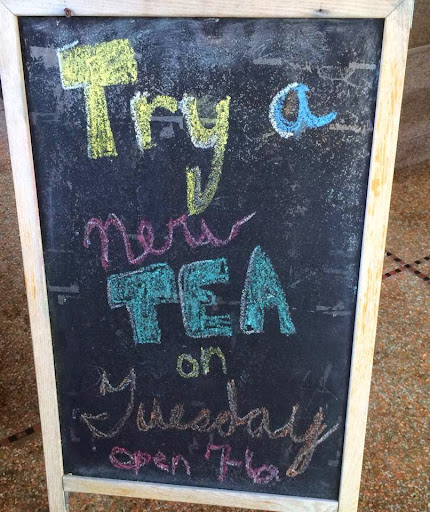 Try a
new
TEA
on
Tuesday
open 7-6